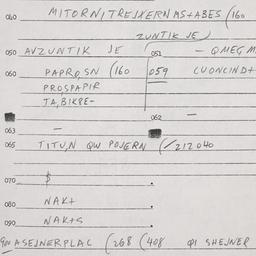 040 MITORN, TREJKERN MS+ABES (160
ZUNTIK JE)
050 AVZUNTIK JE 051 - QMEG M
060 PAPRO, SN (160 059 CUONCIND+
PROSPAPIR
TA, BIKPE-
062 -
063 -
065 TITUN QW POJERN (/212040
070 $
080 NAK+
090 NAK+S
900 ASEJNERPLAC (268 (408 QI SHEJNER